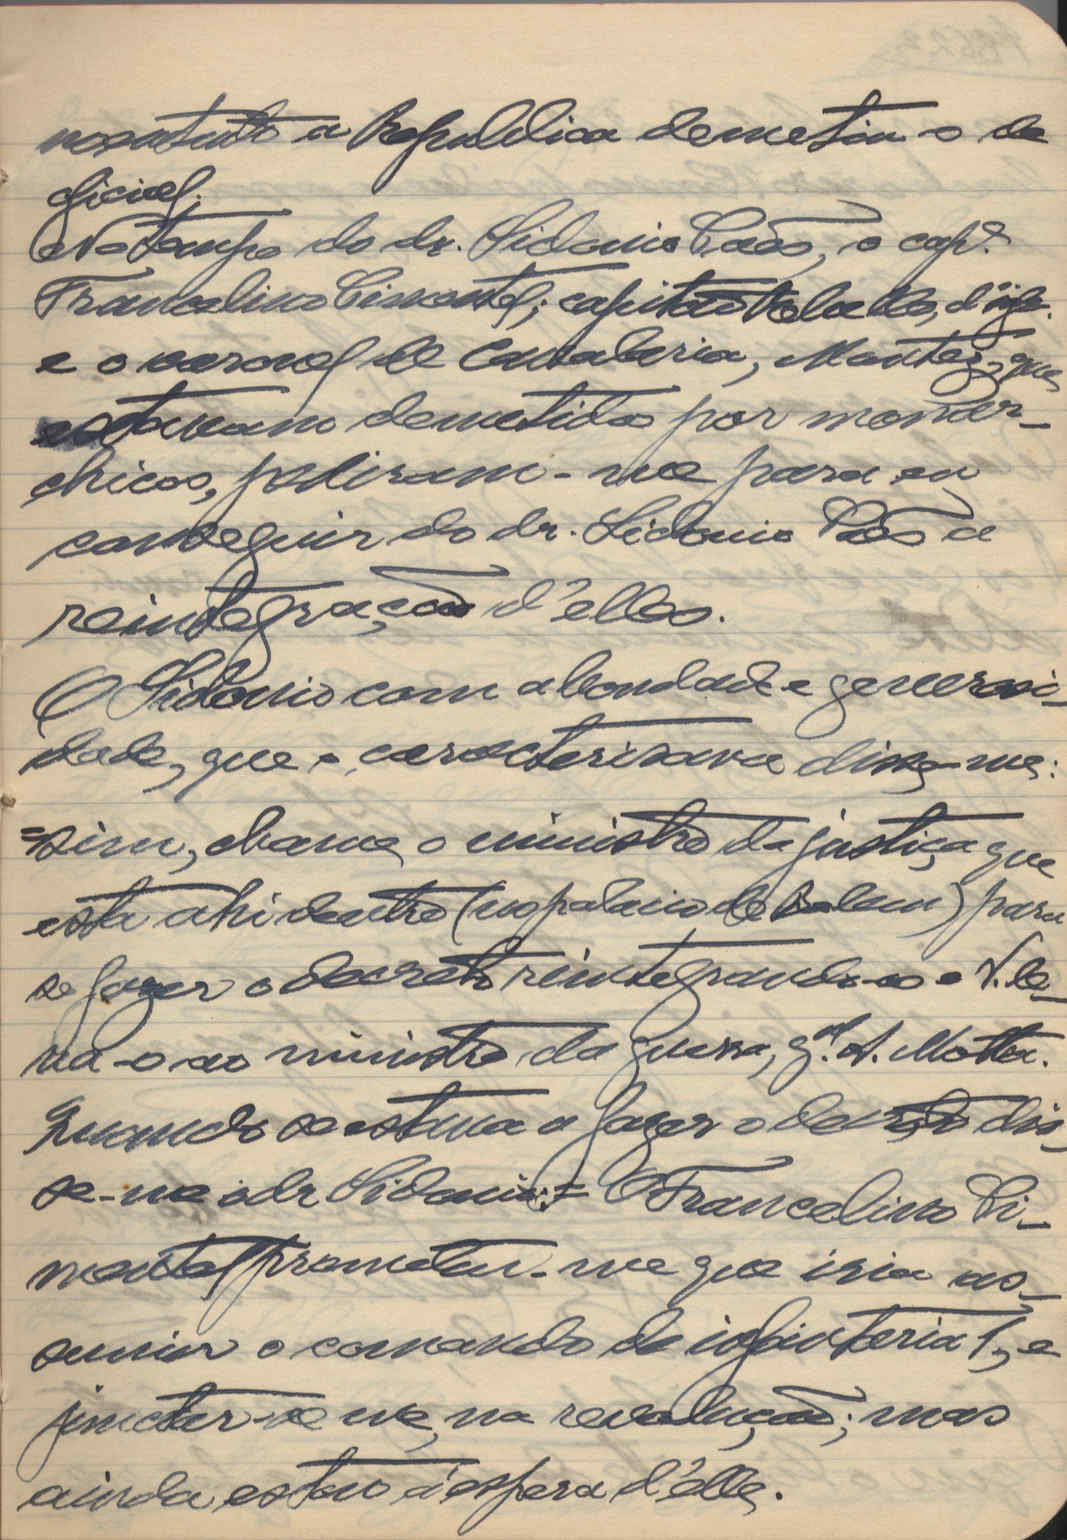 a Republica demetiu-o de
oficial.
No tempo do dr. Sidonio Paes, o cap.º
Francelino Pimentel; capitão Rebello, d'inf.
e o coronel de Cavalaria, Montez, que
estavam demetidos por monar-
chicos, pediram-me para eu
conseguir do dr. Sidonio Paes a
reintegração d'elles.
O Sidonio com a bondade e generosi-
dade, que o caracterisava disse-me:
=sim, chame o ministro da justiça que
esta ahi dentro (no palacio de Belem) para
se fazer o decreto reintegrando-os e V. le-
va-o ao ministro da guerra, g.al A. Motta.
Quando se estava a fazer o decreto dis-
se-me o dr Sidonio: = O Francelino Pi-
mentel prometeu-me que iria as-
sumir o comando de infanteria 1, e
na revolução; mas
ainda estou á espera d'elle.